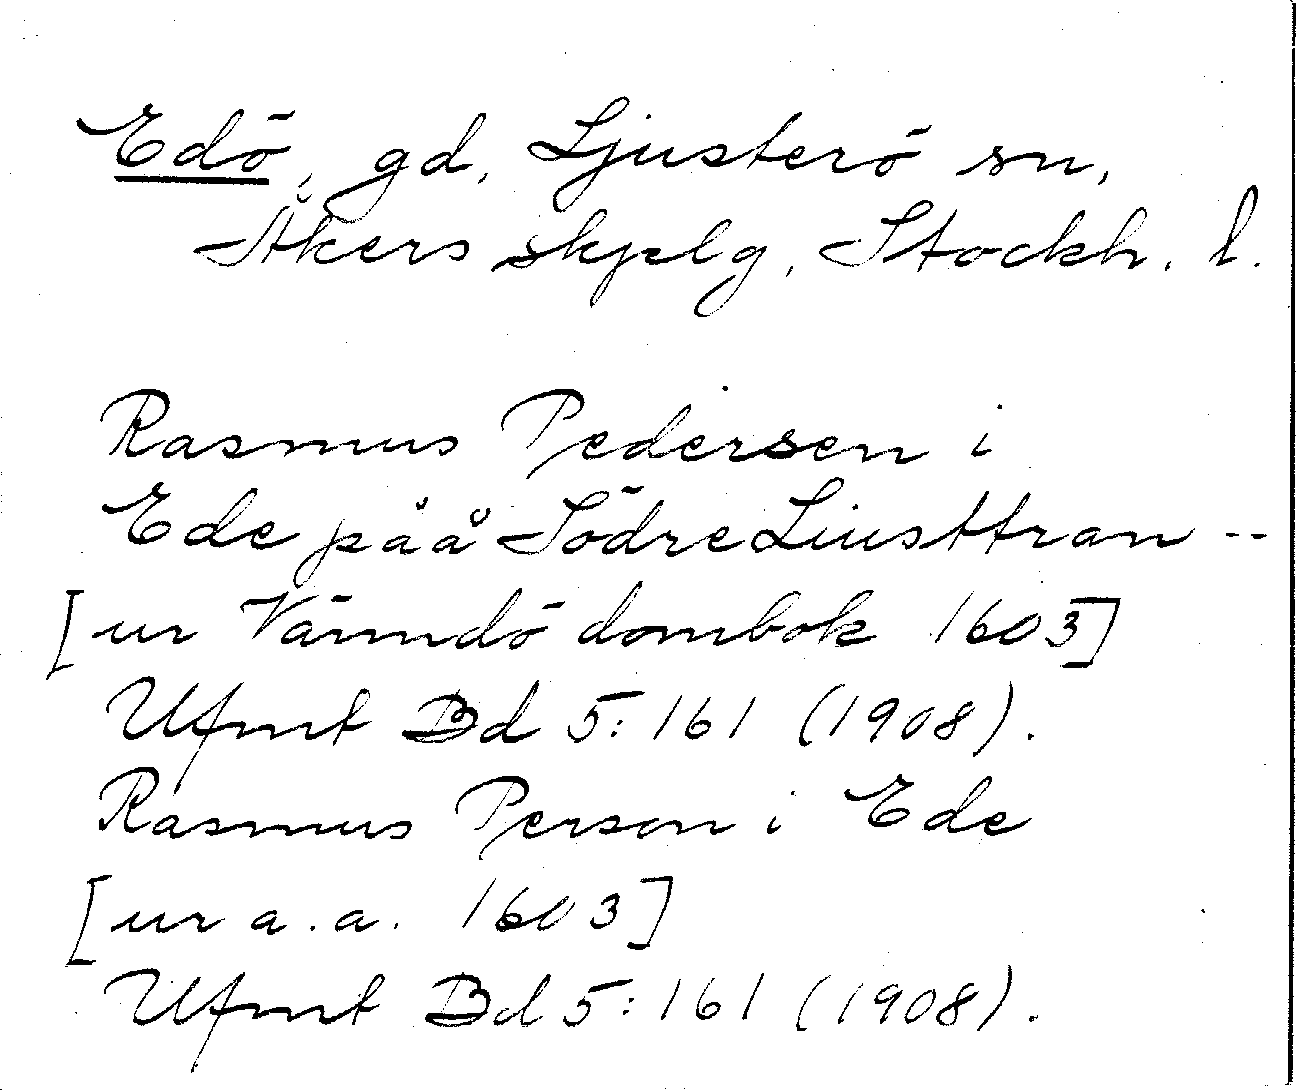 Edö, gd, Ljusterö sn,
Åkers skjelg, Stockh. l.
Rasmus Pedersen i
Ede påå Södre Liusttran --
[ur Värmdö dombok 1603]
Ufmt Bd 5:161 (1908).
Rasmus Person i Ede
[ur a.a. 1603]
Ufmt Bd 5:161 (1908).